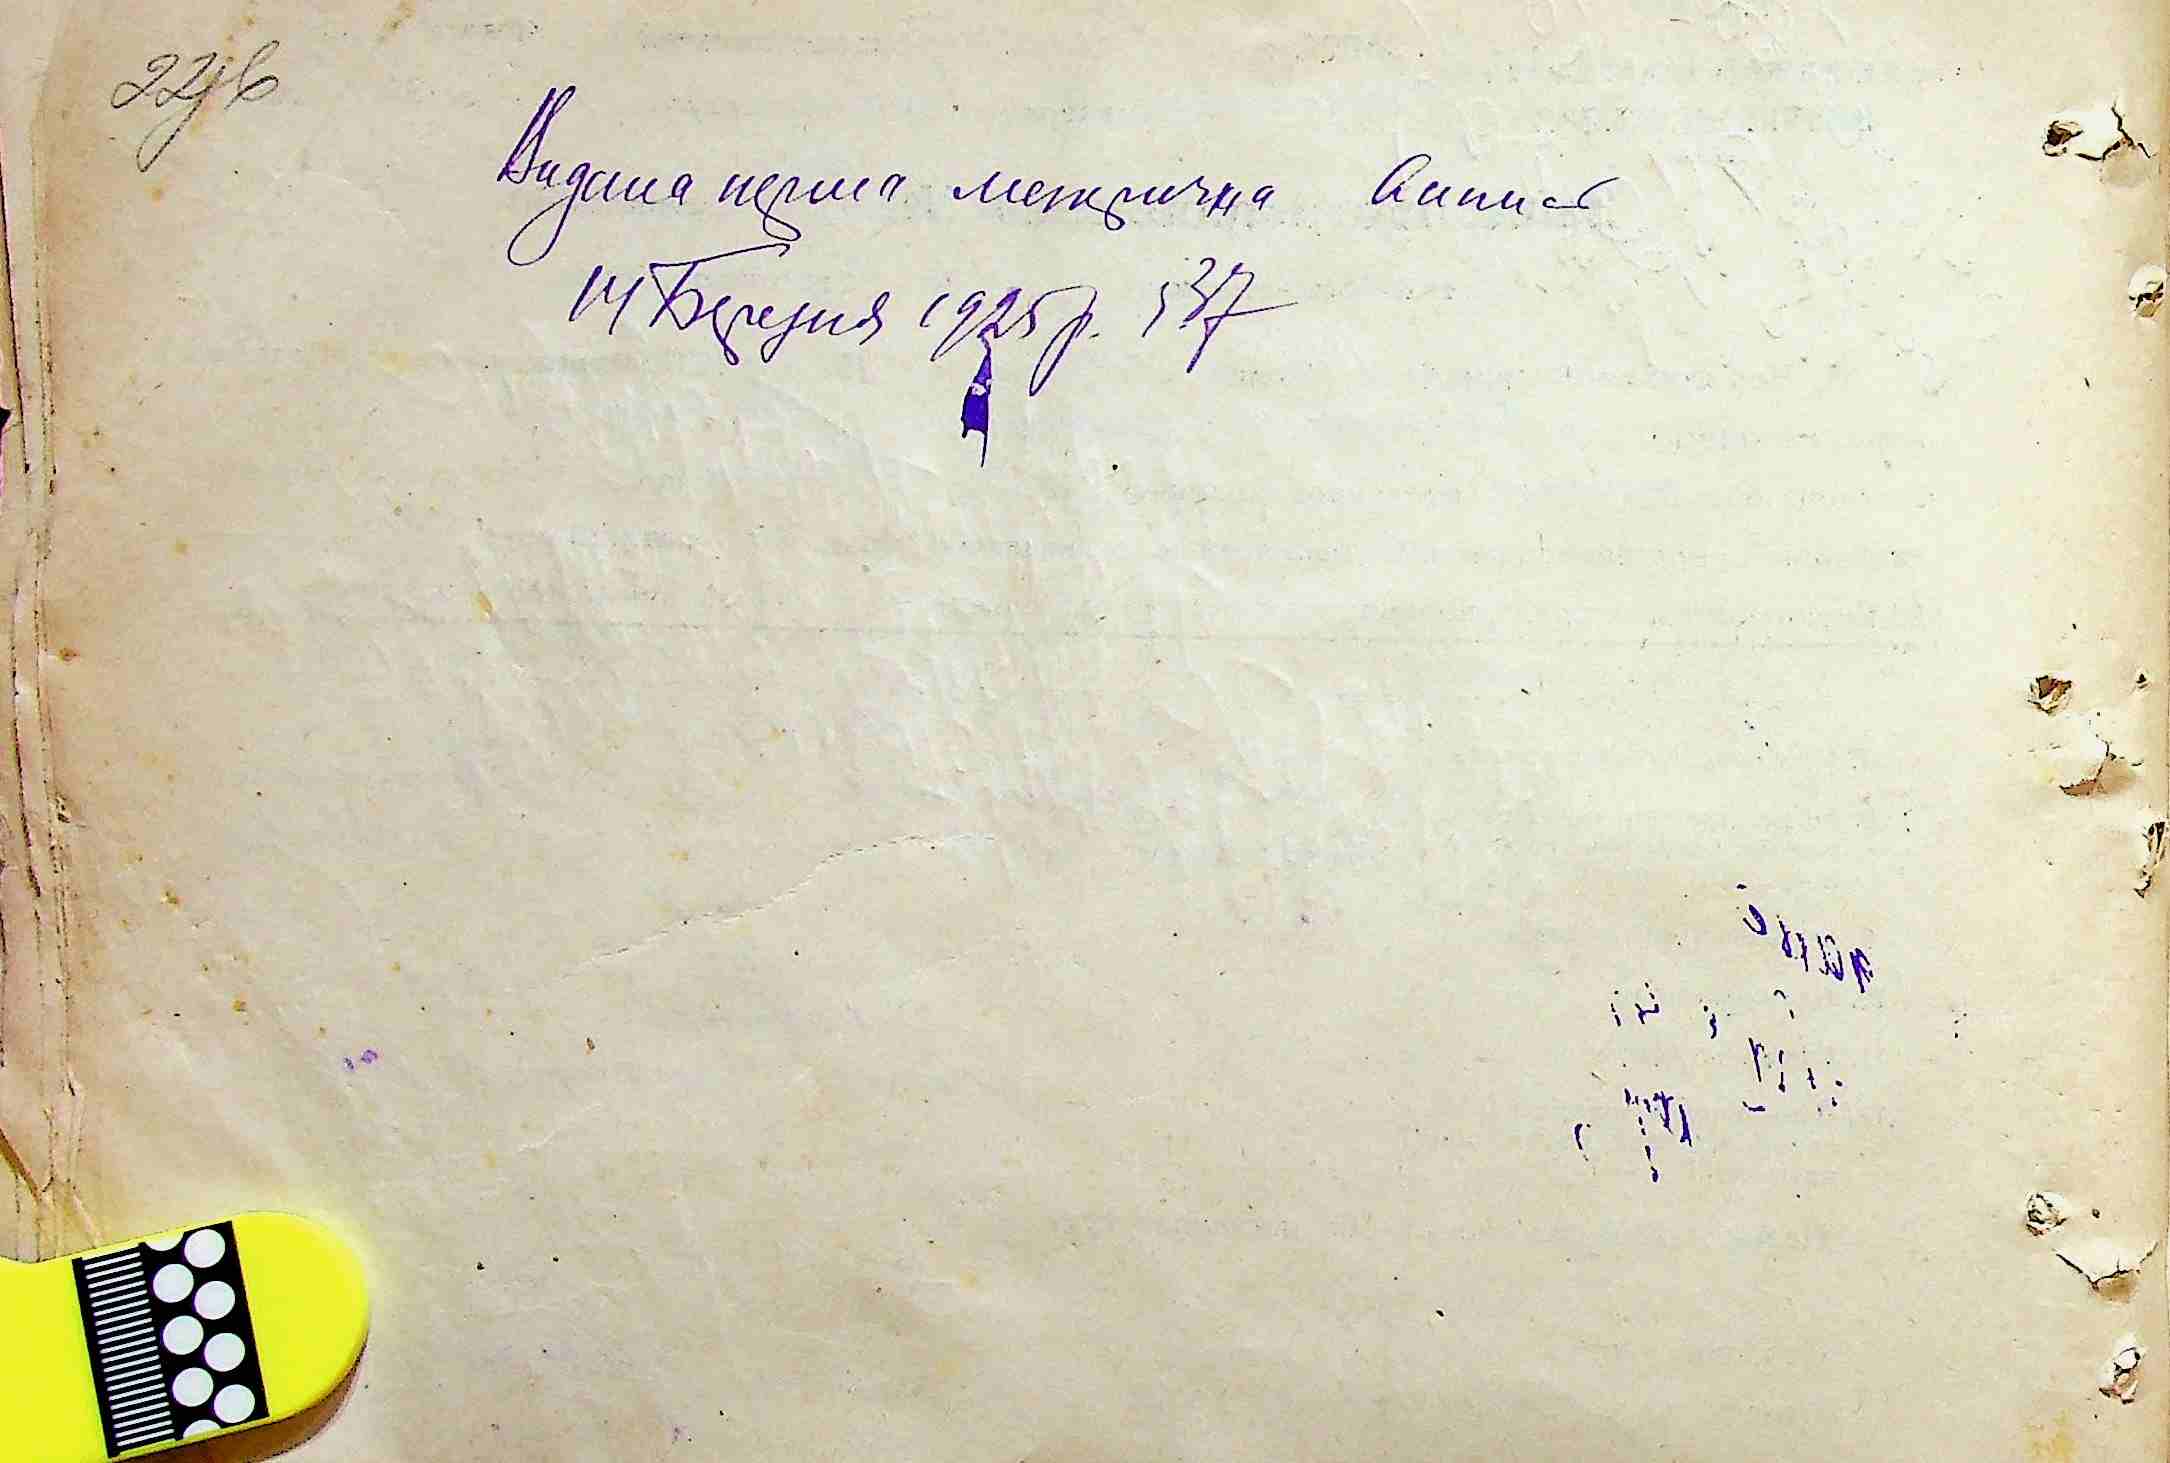 22зв
Видана перша метрична випись
14 Березня 1925 р. 537